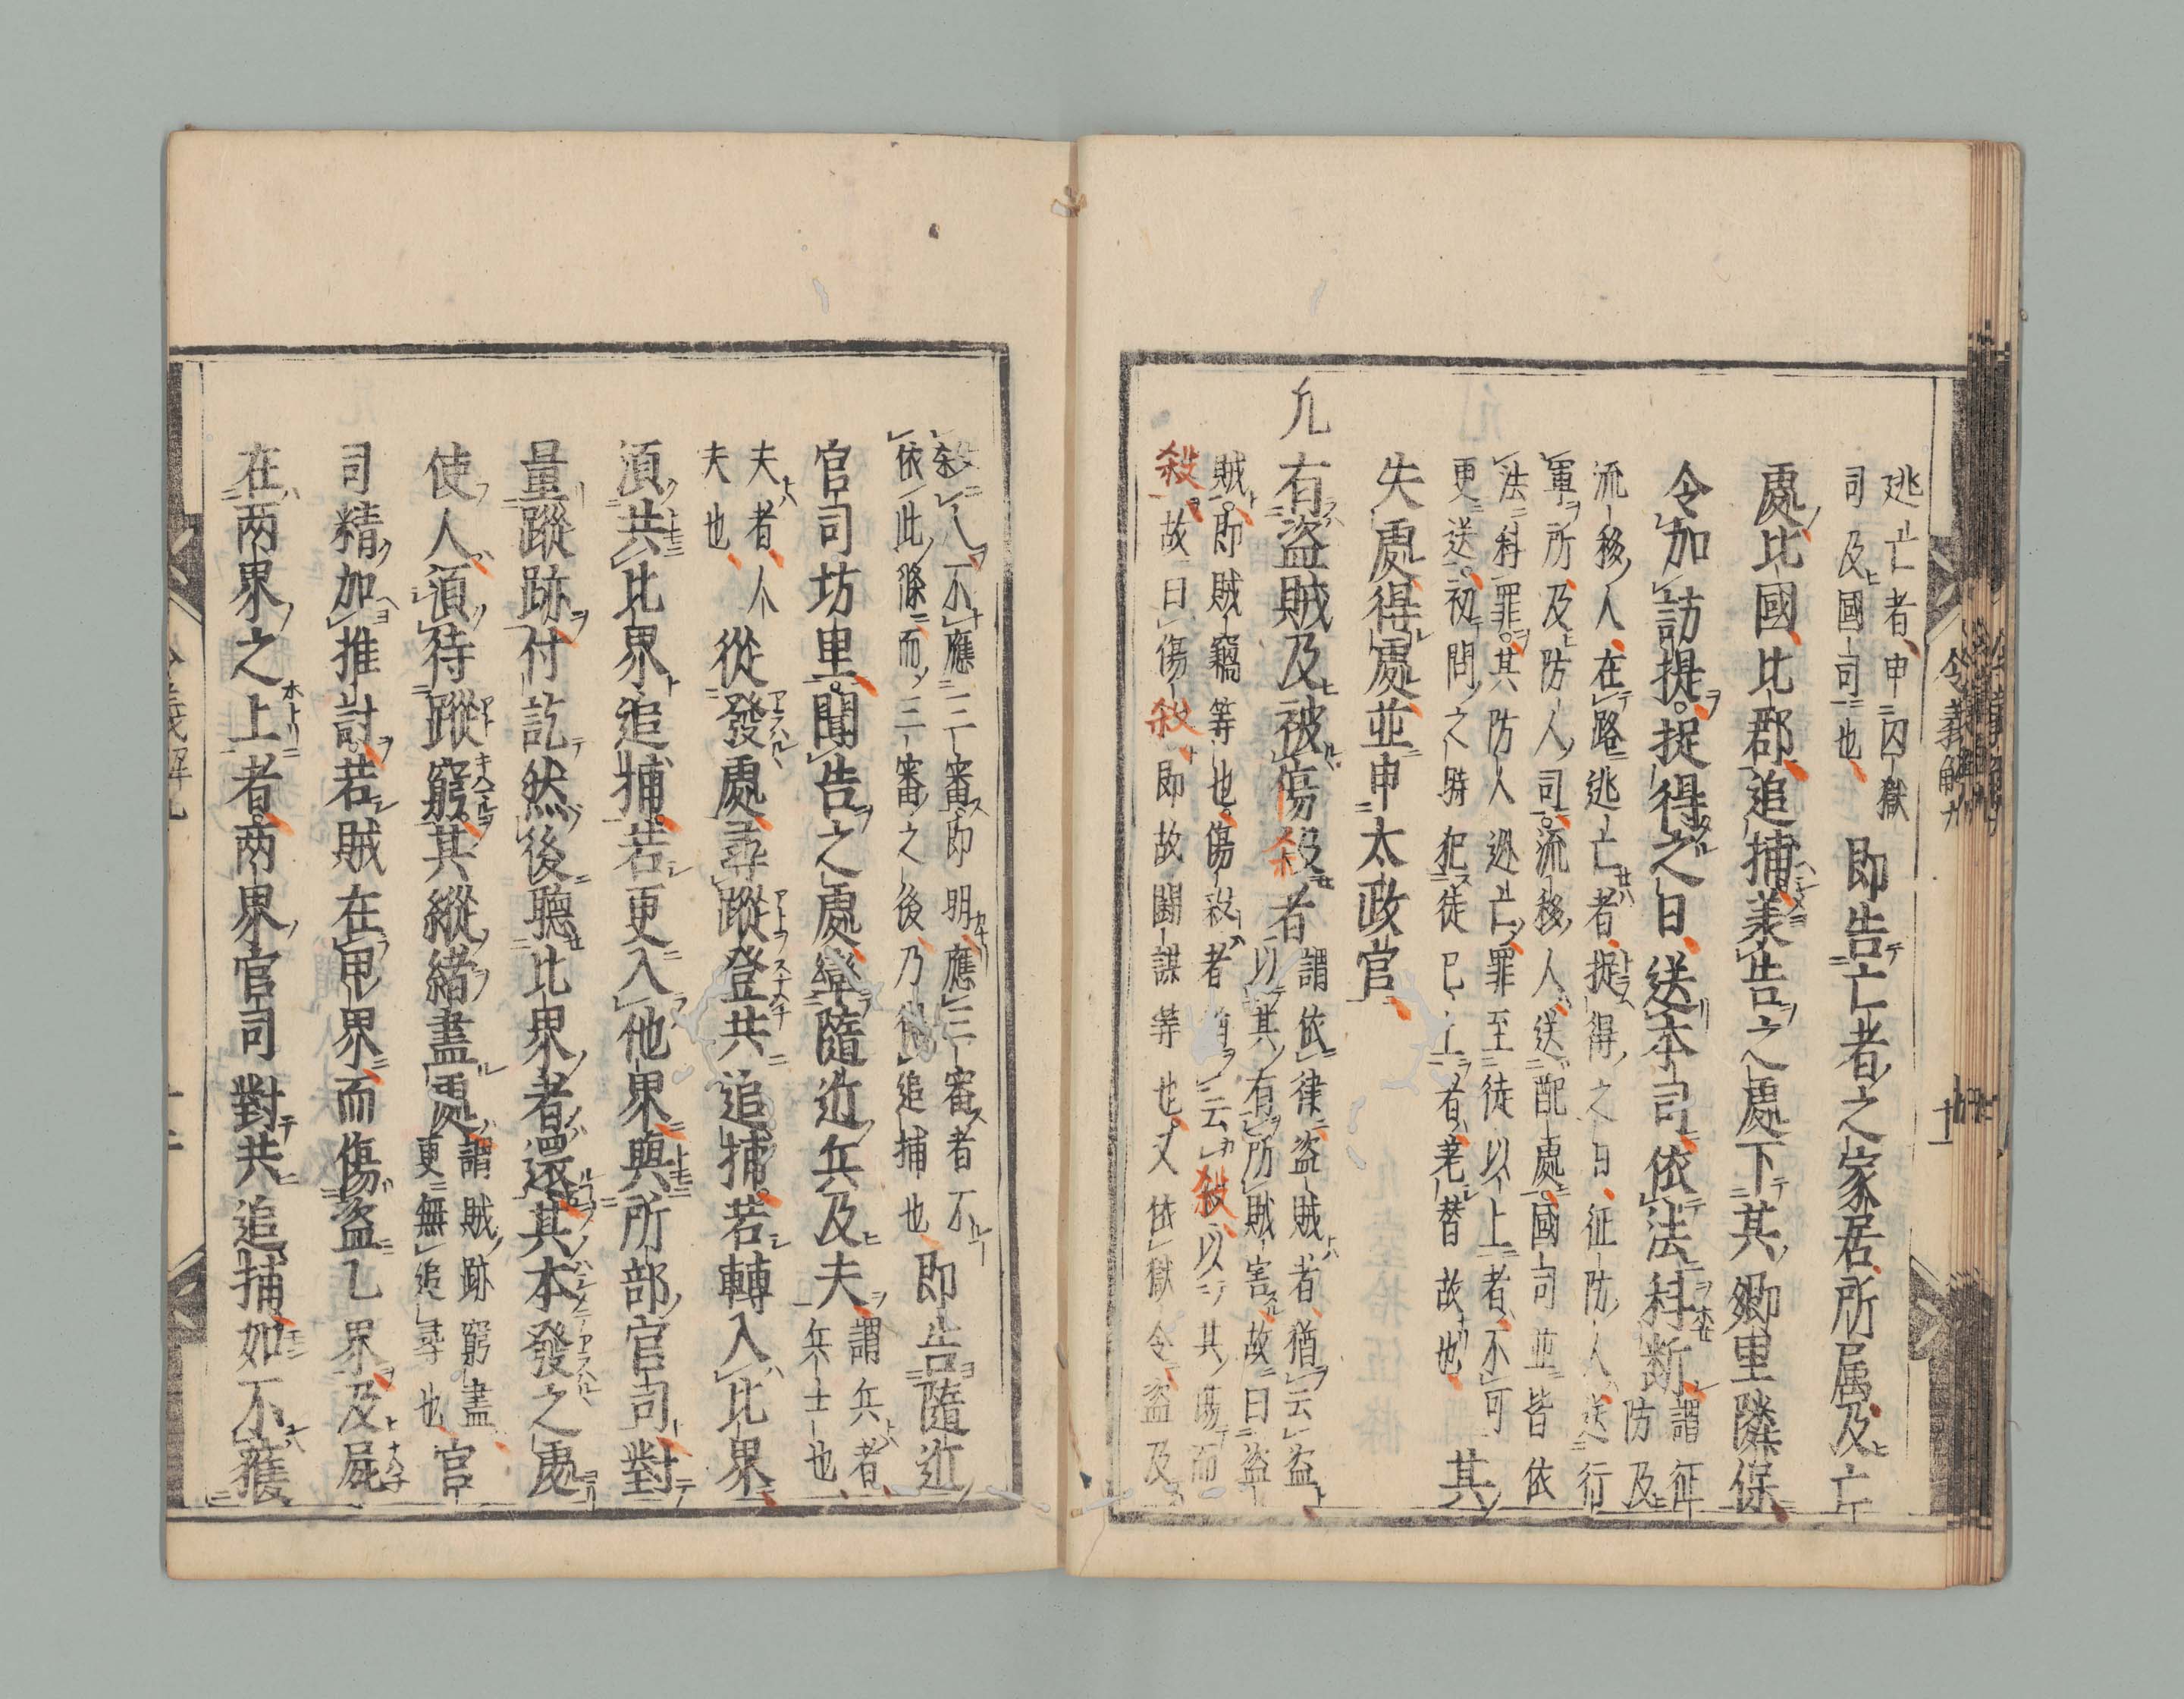 逃亡者申囚獄
司及國司也
即告亡者之家居所属及亡
處比國比郡追捕美告之處下其郷里隣保
令加訪捉捉得之日送本司依法科断
謂征
防及
流移人在路逃亡者捉得之日征防人送行
軍所及防人司流移人送配處國司並皆依
法科罪其防人逃亡罪至徒以上者不可
更送初問之時犯徒已上者差替故也
其
失處得處並申太政官
凡有盗賊及被傷殺者
謂依律盗賊者猶云盗
以其有所賊害故曰盗
賊即賊竊等也傷殺者
云殺以其傷而
殺故曰傷殺即故闘謀等也又依獄令盗及
殺人不應三審即明應三審者不
依此條而三審之後乃追捕也
即告隨近
官司坊里聞告之處率隨近兵及夫
謂兵者
兵士也
夫者人
夫也
從發處尋蹤登共追捕若轉入比界
湏共比界追捕若更入他界與所部官司對
量蹤跡付訖然後聽比界者還其本發之處
使人湏待蹤窮其縱緒盡處
謂賊跡窮盡
更無追尋也
官
司精加推討若賊在甲界而傷盗乙界及屍
在兩界之上者兩界官司對共追捕如不獲